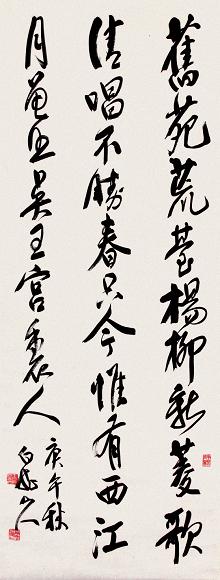 舊苑荒台楊柳新菱歌
清唱不勝春只今惟有西江
月曾照吳王宮裏人
庚午秋